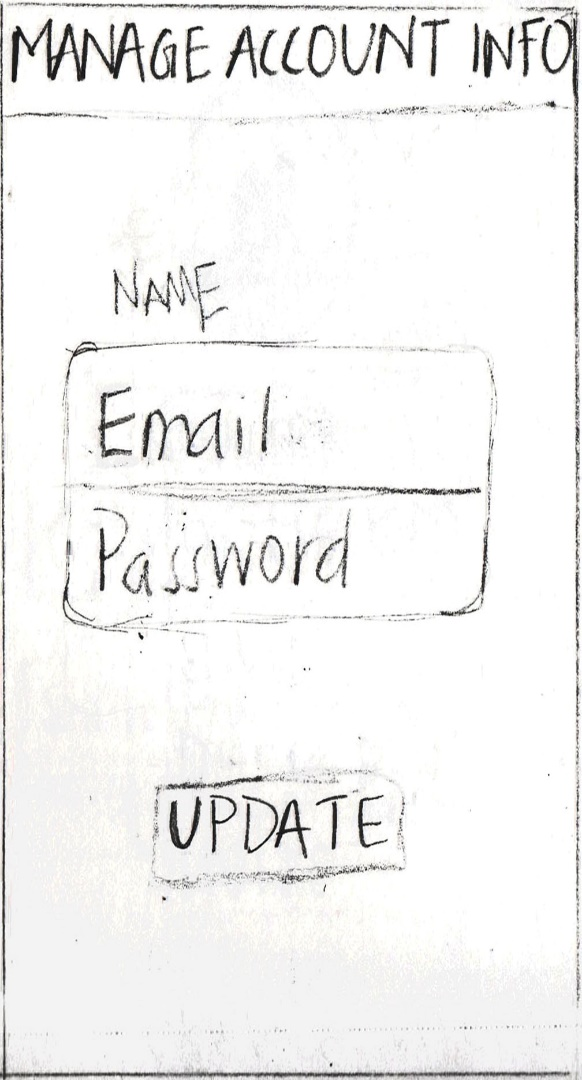 MANAGE ACCOUNT INFO
NAME
Email
Password
UPDATE